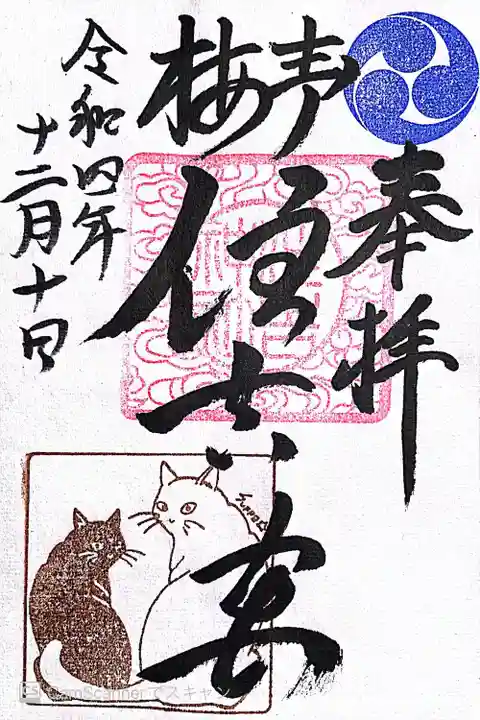 奉拝
青梅
住吉
令和四年
十二月十日
CS CamScannerでスキャン